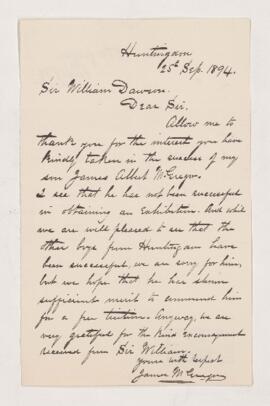 Huntingdon
25th Sep. 1894.
Sir William Dawson.
Dear Sir.
Allow me to
thank you for the interest you have
kindly taken in the success of my
son James Albert McGregor.
I see that he has not been successful
in obtaining an Exhibition. And while
we are well pleased to see that the
other boys from Huntingdon have
been successful, we are sorry for him,
but we hope that he has shown
sufficient merit to commend him
for a free tuition. Anyway, we are
very grateful for the kind encouragement
received from Sir William.
Yours with respect
James McGregor